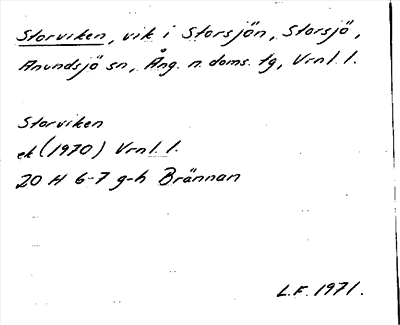 Storviken, vik i Storsjön, Storsjö,
Anundsjö sn, Ång. n. doms. tg, Vrnl. l.
Storviken
ek (1970) Vrnl. l.
20 H 6-7 g-h Brännan
L.F. 1971.